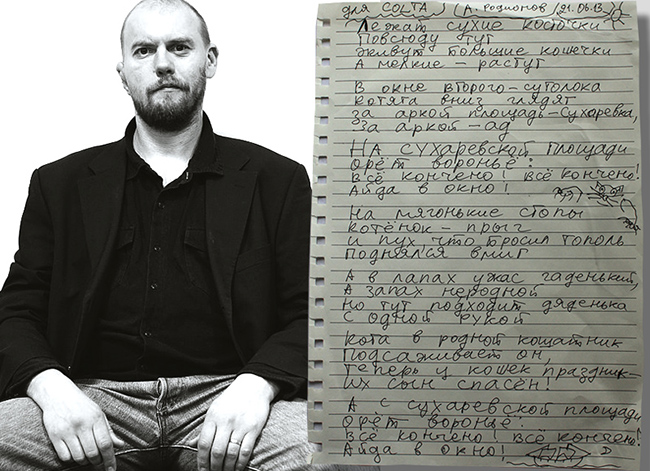 для COLTA (А. Родионов /21.06.13)
Лежат сухие косточки
Повсюду тут
Живут большие кошечки
А мелкие – растут
В окне второго – сутолока
Котята вниз глядят
За аркой площадь – Сухаревка,
За аркой – ад
На Сухаревской площади
Орёт вороньё:
Всё кончено! Всё кончено!
Айда в окно!
На мягонькие стопы
Котёнок – прыг
И пух что бросил тополь
Поднялся вмиг
А в лапах ужас гаденький,
А запах неродной
Но тут подходит дяденька
С одной рукой
Кота в родной кошатник
Подсаживает он,
Теперь у кошек праздник –
Их сын спасён!
А с Сухаревской площади
Орёт вороньё:
Всё кончено! Всё кончено!
Айда в окно!